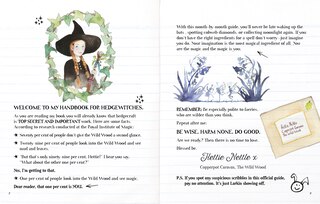 WELCOME TO MY HANDBOOK FOR HEDGEWITCHES.
As you are reading my book you will already know that hedgecraft
is TOP SECRET AND IMPORTANT work. Here are some facts.
According to research conducted at the Royal Institute of Magic:
Seventy per cent of people don't give the Wild Wood a second glance.
Twenty nine per cent of people look into the Wild Wood and see
mud and leaves.
"But that's only ninety nine per cent, Hettie!" I hear you say.
"What about the other one per cent?"
Now, I'm getting to that.
One per cent of people look into the Wild Wood and see magic.
Dear reader, that one per cent is YOU.
With this month-by-month guide, you'll never be late waking up the
bats, spotting cobweb diamonds, or collecting moonlight again. If you
don't have the right ingredients for a spell don't worry – just imagine
you do. Your imagination is the most magical ingredient of all. You
are the magic and the magic is you.
REMEMBER: Be especially polite to faeries
who are wilder than you think.
Repeat after me:
BE WISE. HARM NONE. DO GOOD.
Are we ready? Then there is no time to lose.
Blessed be
Hettie Nettle x
Copperpot Caravan, The Wild Wood
P.S. If you spot any suspicious scribbles in this official guide,
pay no attention. It's just Larkin showing off.